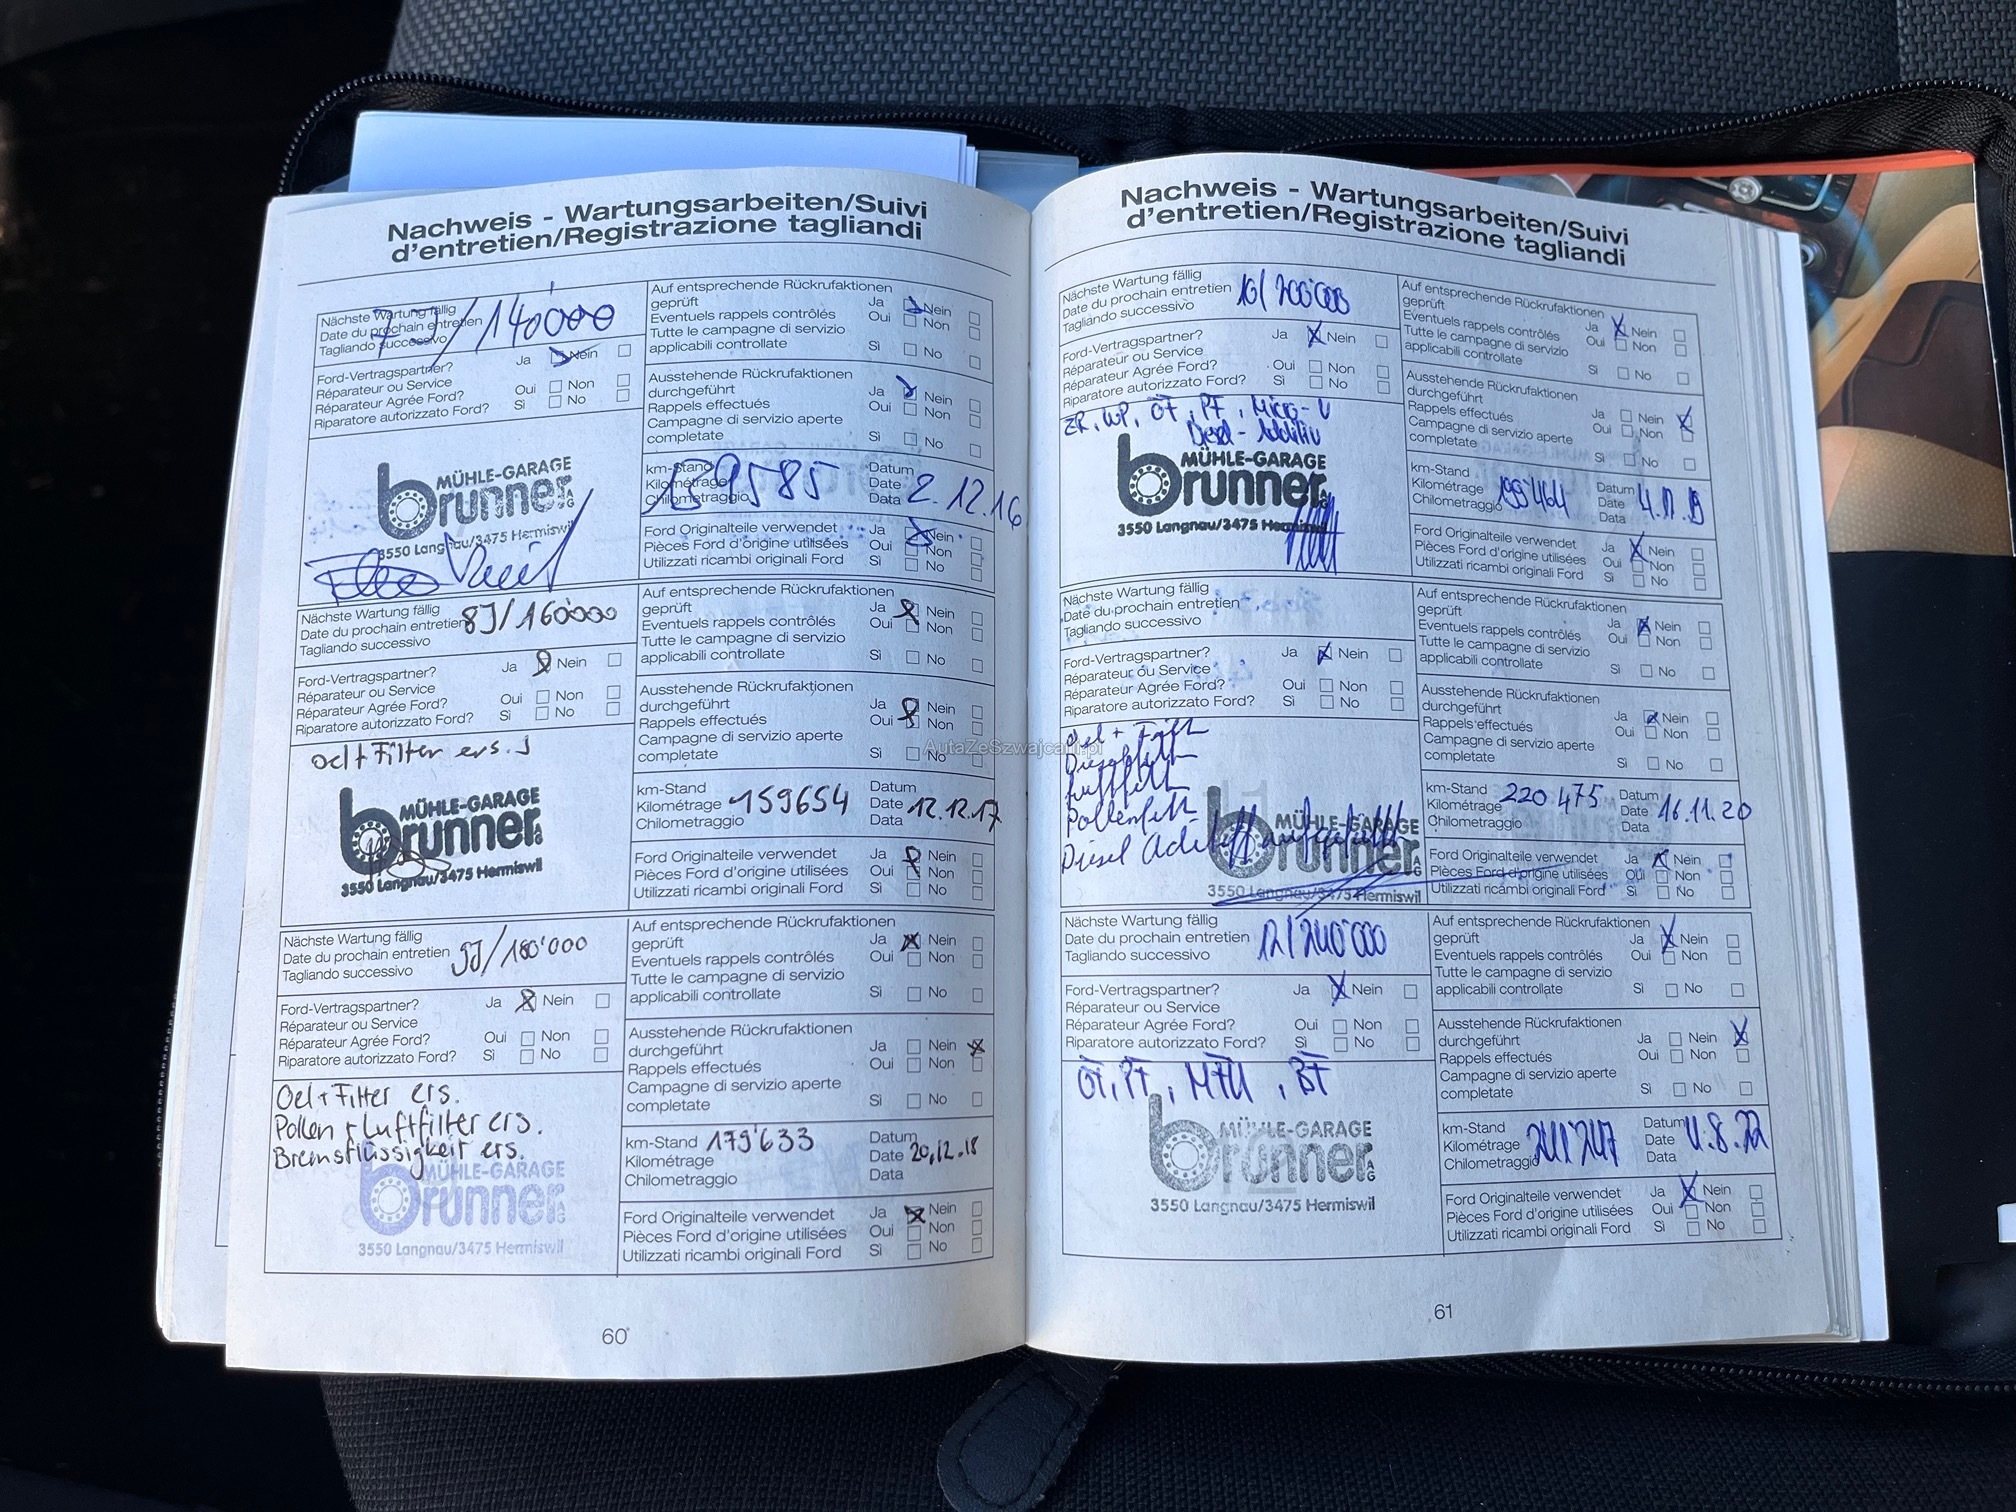 Nachweis - Wartungsarbeiten/Suivi
d'entretien/Registrazione tagliandi
Nächste Wartung fällig
Date du prochain entretien
Tagliando successivo
7J/140'000
Ford-Vertragspartner? Ja Nein
Réparateur ou Service
Réparateur Agrée Ford? Oui Non
Riparatore autorizzato Ford? Sì No
MÜHLE-GARAGE
brunner AG
3550 Langnau/3475 Hermiswil
Auf entsprechende Rückrufaktionen
geprüft Ja Nein
Eventuels rappels contrôlés Oui Non
Tutte le campagne di servizio
applicabili controllate Sì No
Ausstehende Rückrufaktionen
durchgeführt Ja Nein
Rappels effectués Oui Non
Campagne di servizio aperte
completate Sì No
km-Stand Datum
Kilométrage 139585 Date 2.12.16
Chilometraggio Data
Ford Originalteile verwendet Ja Nein
Pièces Ford d'origine utilisées Oui Non
Utilizzati ricambi originali Ford Sì No
Nächste Wartung fällig
Date du prochain entretien 8J/160'000
Tagliando successivo
Ford-Vertragspartner? Ja Nein
Réparateur ou Service
Réparateur Agrée Ford? Oui Non
Riparatore autorizzato Ford? Sì No
Oel + Filter ers.
MÜHLE-GARAGE
brunner AG
3550 Langnau/3475 Hermiswil
Auf entsprechende Rückrufaktionen
geprüft Ja Nein
Eventuels rappels contrôlés Oui Non
Tutte le campagne di servizio
applicabili controllate Sì No
Ausstehende Rückrufaktionen
durchgeführt Ja Nein
Rappels effectués Oui Non
Campagne di servizio aperte
completate Sì No
km-Stand Datum
Kilométrage 159654 Date 12.12.17
Chilometraggio Data
Ford Originalteile verwendet Ja Nein
Pièces Ford d'origine utilisées Oui Non
Utilizzati ricambi originali Ford Sì No
Nächste Wartung fällig
Date du prochain entretien 9J/180'000
Tagliando successivo
Ford-Vertragspartner? Ja Nein
Réparateur ou Service
Réparateur Agrée Ford? Oui Non
Riparatore autorizzato Ford? Sì No
Oel + Filter ers.
Pollen + Luftfilter ers.
Bremsflüssigkeit ers.
MÜHLE-GARAGE
brunner AG
3550 Langnau/3475 Hermiswil
Auf entsprechende Rückrufaktionen
geprüft Ja Nein
Eventuels rappels contrôlés Oui Non
Tutte le campagne di servizio
applicabili controllate Sì No
Ausstehende Rückrufaktionen
durchgeführt Ja Nein
Rappels effectués Oui Non
Campagne di servizio aperte
completate Sì No
km-Stand 179'633 Datum
Kilométrage Date 20.12.18
Chilometraggio Data
Ford Originalteile verwendet Ja Nein
Pièces Ford d'origine utilisées Oui Non
Utilizzati ricambi originali Ford Sì No
60
AutaZeSzwajcarii.pl
Nachweis - Wartungsarbeiten/Suivi
d'entretien/Registrazione tagliandi
Nächste Wartung fällig
Date du prochain entretien 10/200'000
Tagliando successivo
Ford-Vertragspartner? Ja Nein
Réparateur ou Service
Réparateur Agrée Ford? Oui Non
Riparatore autorizzato Ford? Sì No
ZR, WP, ÖF, PF, Micro-U
Diesel-Additiv
MÜHLE-GARAGE
brunner AG
3550 Langnau/3475 Hermiswil
Auf entsprechende Rückrufaktionen
geprüft Ja Nein
Eventuels rappels contrôlés Oui Non
Tutte le campagne di servizio
applicabili controllate Sì No
Ausstehende Rückrufaktionen
durchgeführt Ja Nein
Rappels effectués Oui Non
Campagne di servizio aperte
completate Sì No
km-Stand Datum
Kilométrage 199'464 Date 4.11.19
Chilometraggio Data
Ford Originalteile verwendet Ja Nein
Pièces Ford d'origine utilisées Oui Non
Utilizzati ricambi originali Ford Sì No
Nächste Wartung fällig
Date du prochain entretien
Tagliando successivo
Ford-Vertragspartner? Ja Nein
Réparateur ou Service
Réparateur Agrée Ford? Oui Non
Riparatore autorizzato Ford? Sì No
Oel + Filter
Dieselfilter
Luftfilter
Pollenfilter
Diesel Aditiff aufgefüllt
MÜHLE-GARAGE
brunner AG
3550 Langnau/3475 Hermiswil
Auf entsprechende Rückrufaktionen
geprüft Ja Nein
Eventuels rappels contrôlés Oui Non
Tutte le campagne di servizio
applicabili controllate Sì No
Ausstehende Rückrufaktionen
durchgeführt Ja Nein
Rappels effectués Oui Non
Campagne di servizio aperte
completate Sì No
km-Stand Datum
Kilométrage 220 475 Date 16.11.20
Chilometraggio Data
Ford Originalteile verwendet Ja Nein
Pièces Ford d'origine utilisées Oui Non
Utilizzati ricambi originali Ford Sì No
Nächste Wartung fällig
Date du prochain entretien 12/240'000
Tagliando successivo
Ford-Vertragspartner? Ja Nein
Réparateur ou Service
Réparateur Agrée Ford? Oui Non
Riparatore autorizzato Ford? Sì No
ÖF, PF, MFU, BF
MÜHLE-GARAGE
brunner AG
3550 Langnau/3475 Hermiswil
Auf entsprechende Rückrufaktionen
geprüft Ja Nein
Eventuels rappels contrôlés Oui Non
Tutte le campagne di servizio
applicabili controllate Sì No
Ausstehende Rückrufaktionen
durchgeführt Ja Nein
Rappels effectués Oui Non
Campagne di servizio aperte
completate Sì No
km-Stand Datum
Kilométrage 241'247 Date 4.8.22
Chilometraggio Data
Ford Originalteile verwendet Ja Nein
Pièces Ford d'origine utilisées Oui Non
Utilizzati ricambi originali Ford Sì No
61